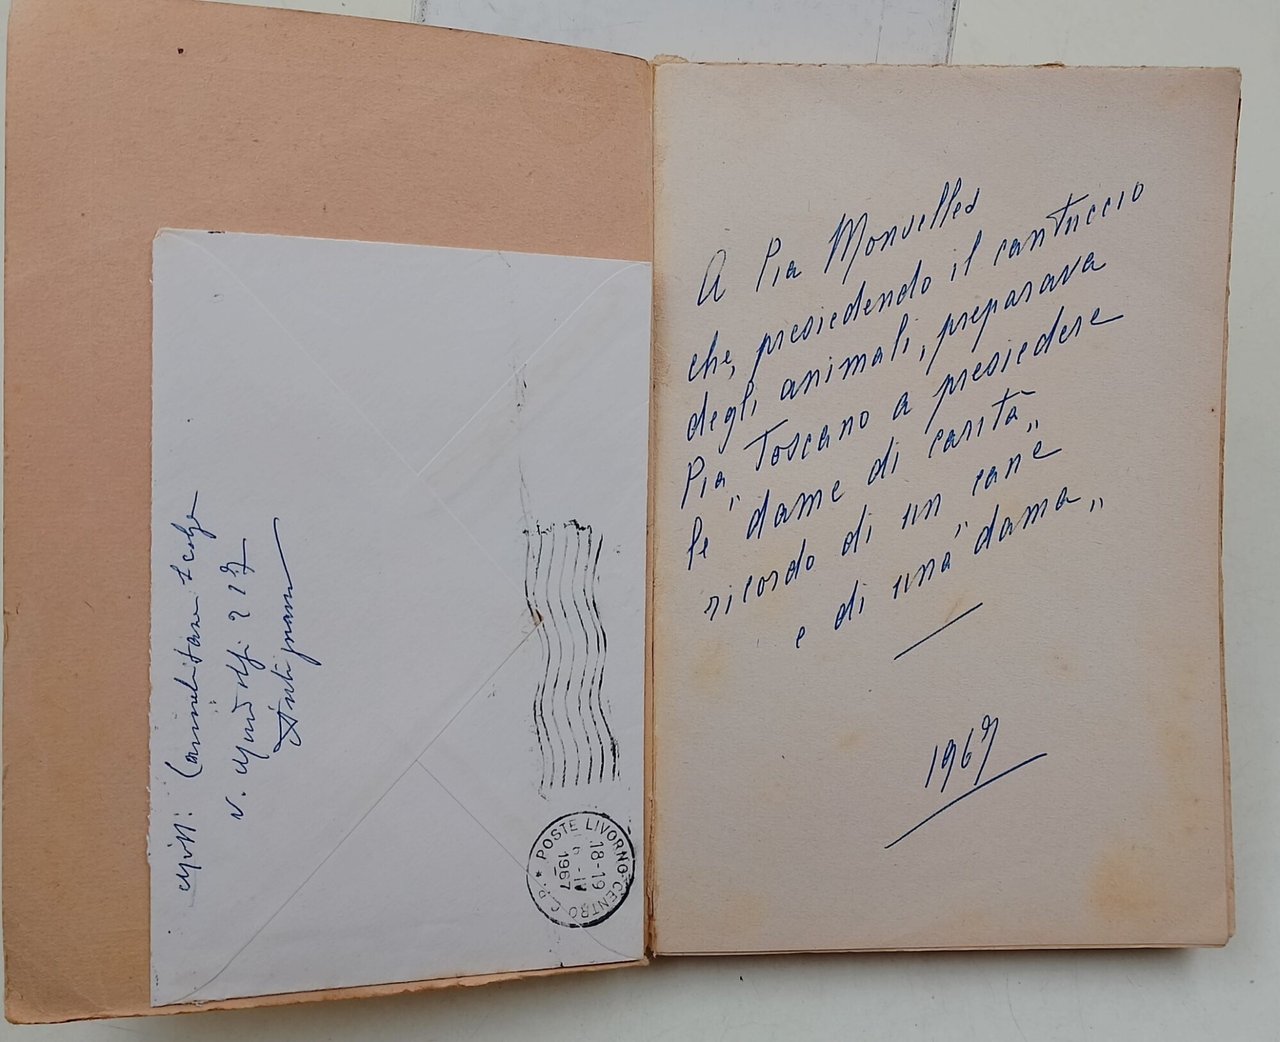 Mitt:
v. 217
Antignano
POSTE LIVORNO CENTRO C.P. *
18-19
6-IV
1967
A Pia
che, presiedendo il cantuccio
degli animali, preparava
Pia Toscano a presiedere
le "dame di carità„
ricordo di un cane
e di una "dama„
1967